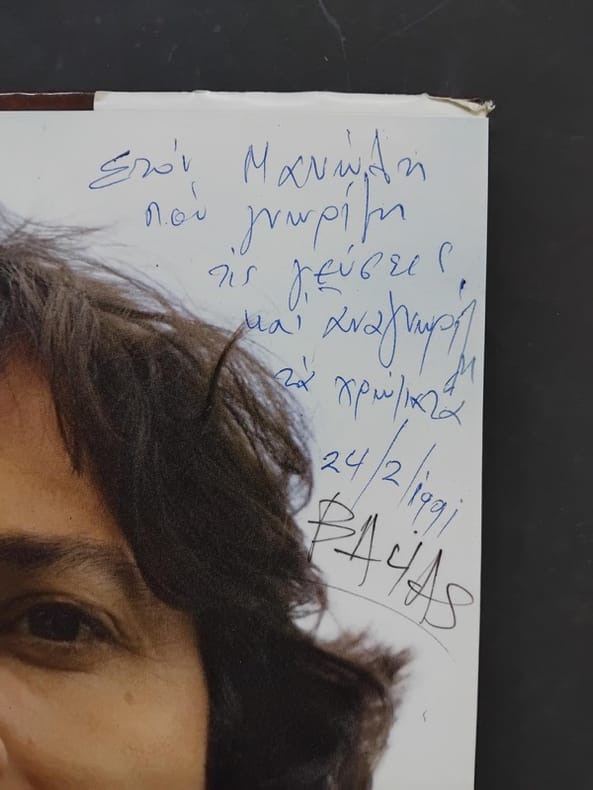 Στόν Μανώλη
πού γνωρίζη
τίς γεύσεις
καί ἀναγνωρί
ζη
τά χρώματα
24/2/1991
ΒΑΨΑΣ